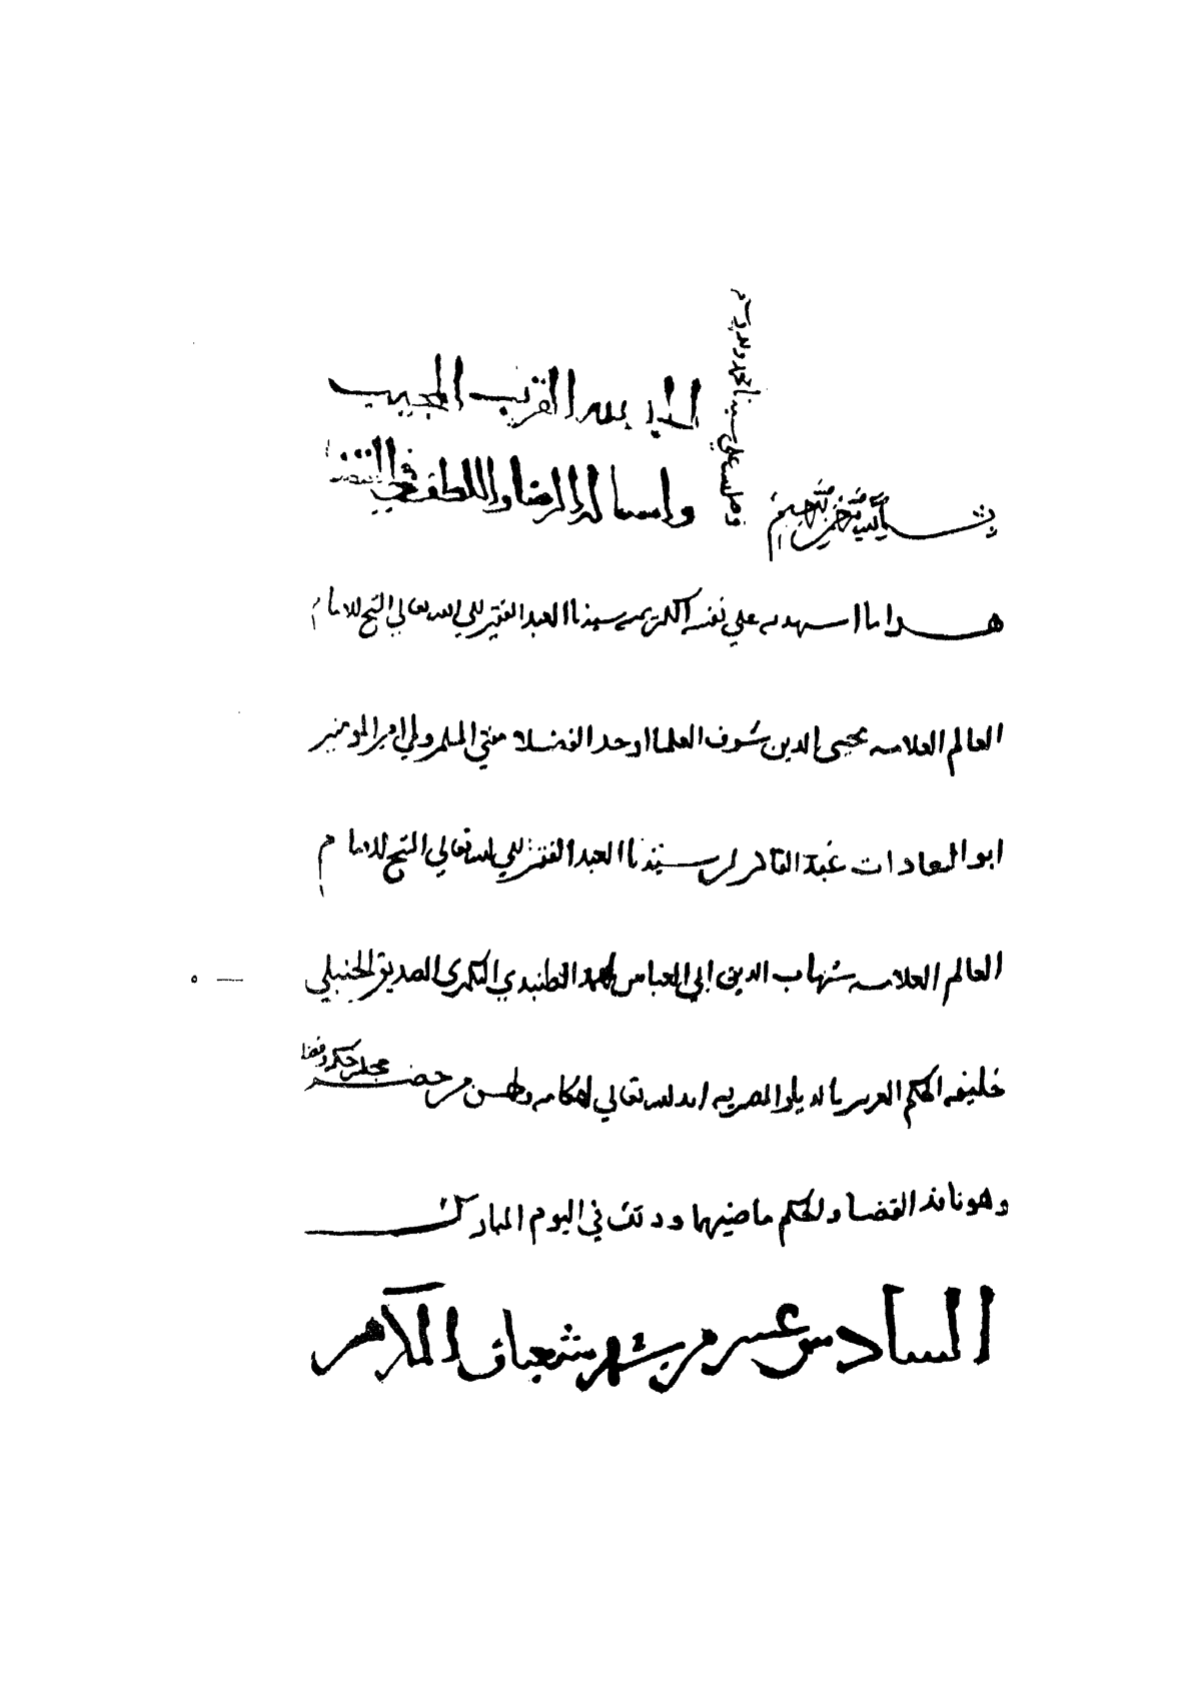 الحمد لله القريب المجيب
واسأله الرضا واللطف في
بسم الله الرحمن الرحيم
وصلى الله على سيدنا محمد واله وسلم
هذا ما اشهد به على نفسه الكريمه سيدنا العبد الفقير الى الله تعالى الشيخ الامام
العالم العلامه محيى الدين شرف العلما اوحد الفضلا مفتي المسلمين ولي امير المومنين
ابو السعادات عبد القادر ابن سيدنا العبد الفقير الى الله تعالى الشيخ الامام
العالم العلامه شهاب الدين ابي العباس احمد الطنبدي البكرى الصديقي الحنبلي
خليفه الحكم العزيز بالديار المصريه ايد الله تعالى احكامه واحسن من حضر مجلس حكمه وقضا
وهو نافذ القضا والحكم ماضيهما وذلك في اليوم المبارك
السادس عشر من شهر شعبان المكرم